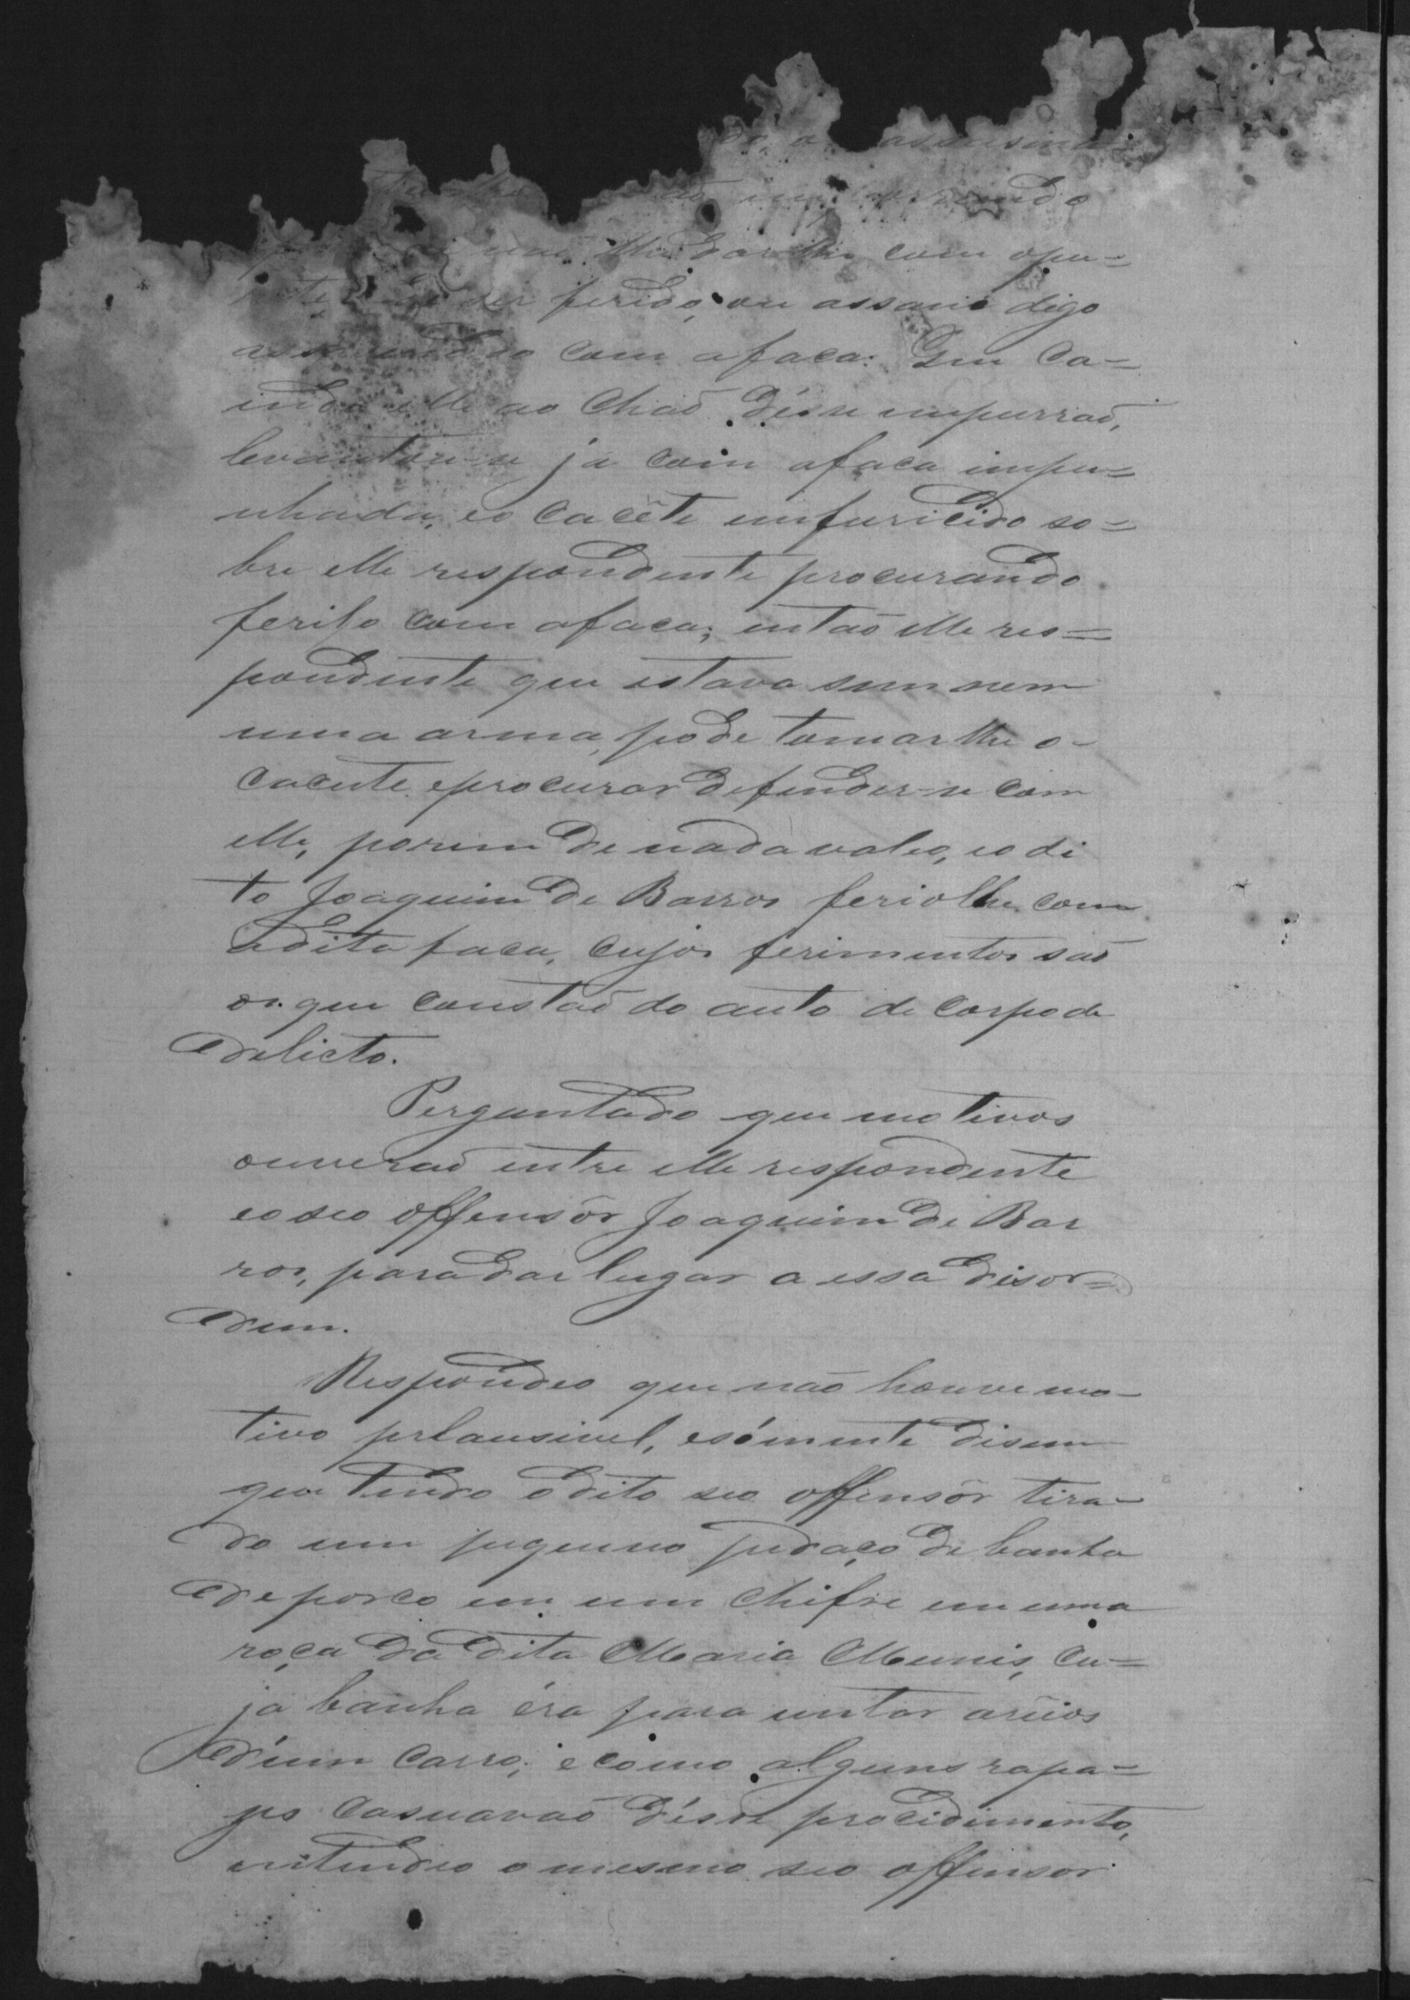 com o pu=
ser ferido, ou assasi digo
com a faca. Em Ca=
indo elle ao Chaõ désse impurraõ,
levantou-se já com a faca impu=
nhada, eo Cacête imfuricido so=
bre elle respondente procurando
ferilo com a faca; entaõ elle res=
pondente que estava sem nem
uma arma, pode tomar lhe o-
Cacente, e procurar defender-se com
elle, porem de nada valeo, eo di
to Joaquim de Barros feriolhe com
adita faca, Cujos ferimentos saõ
os que constaõ do auto de Corpo de
Delicto.
Perguntado que motivos
ouveraõ entre elle respondente
eo seo offensôr Joaquim de Bar
ros, para dar lugar a essa disor=
dem.
Respondeo que não houve mo-
tivo prlausivel, esómente disem
que tendo o dito seo offensôr tira-
do um pequeno pedaço de banha
de porco em um chifre em uma
roça da dita Maria Munis, Cu=
ja banha éra para untar
d'um Carro; e como alguns rapa=
zes Casuavaõ désse procidimento,
entendeo o mesmo seo offensor